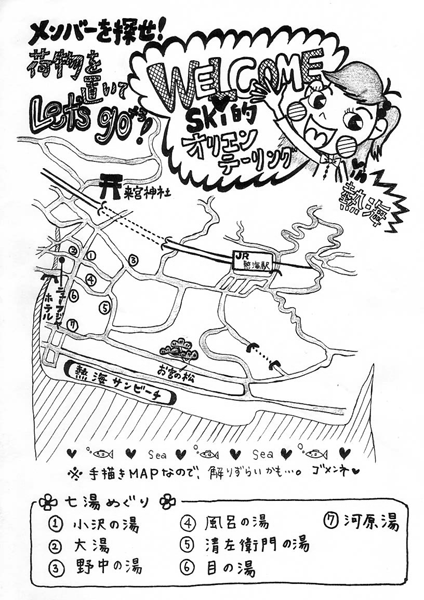 メンバーを探せ!
荷物を
置いて
Let's go!
WELCOME
Ski的
オリエン
テーリング
熱海
来宮神社
JR
熱海駅
③
①
③
⑥
⑤
⑦
ニューフジヤ
ホテル
お宮の松
熱海サンビーチ
Sea
Sea
※ 手描きMAPなので、解りずらいかも…。ゴメンネ♥
七湯めぐり
① 小沢の湯
② 大湯
③ 野中の湯
④ 風呂の湯
⑤ 清左衛門の湯
⑥ 目の湯
⑦ 河原湯